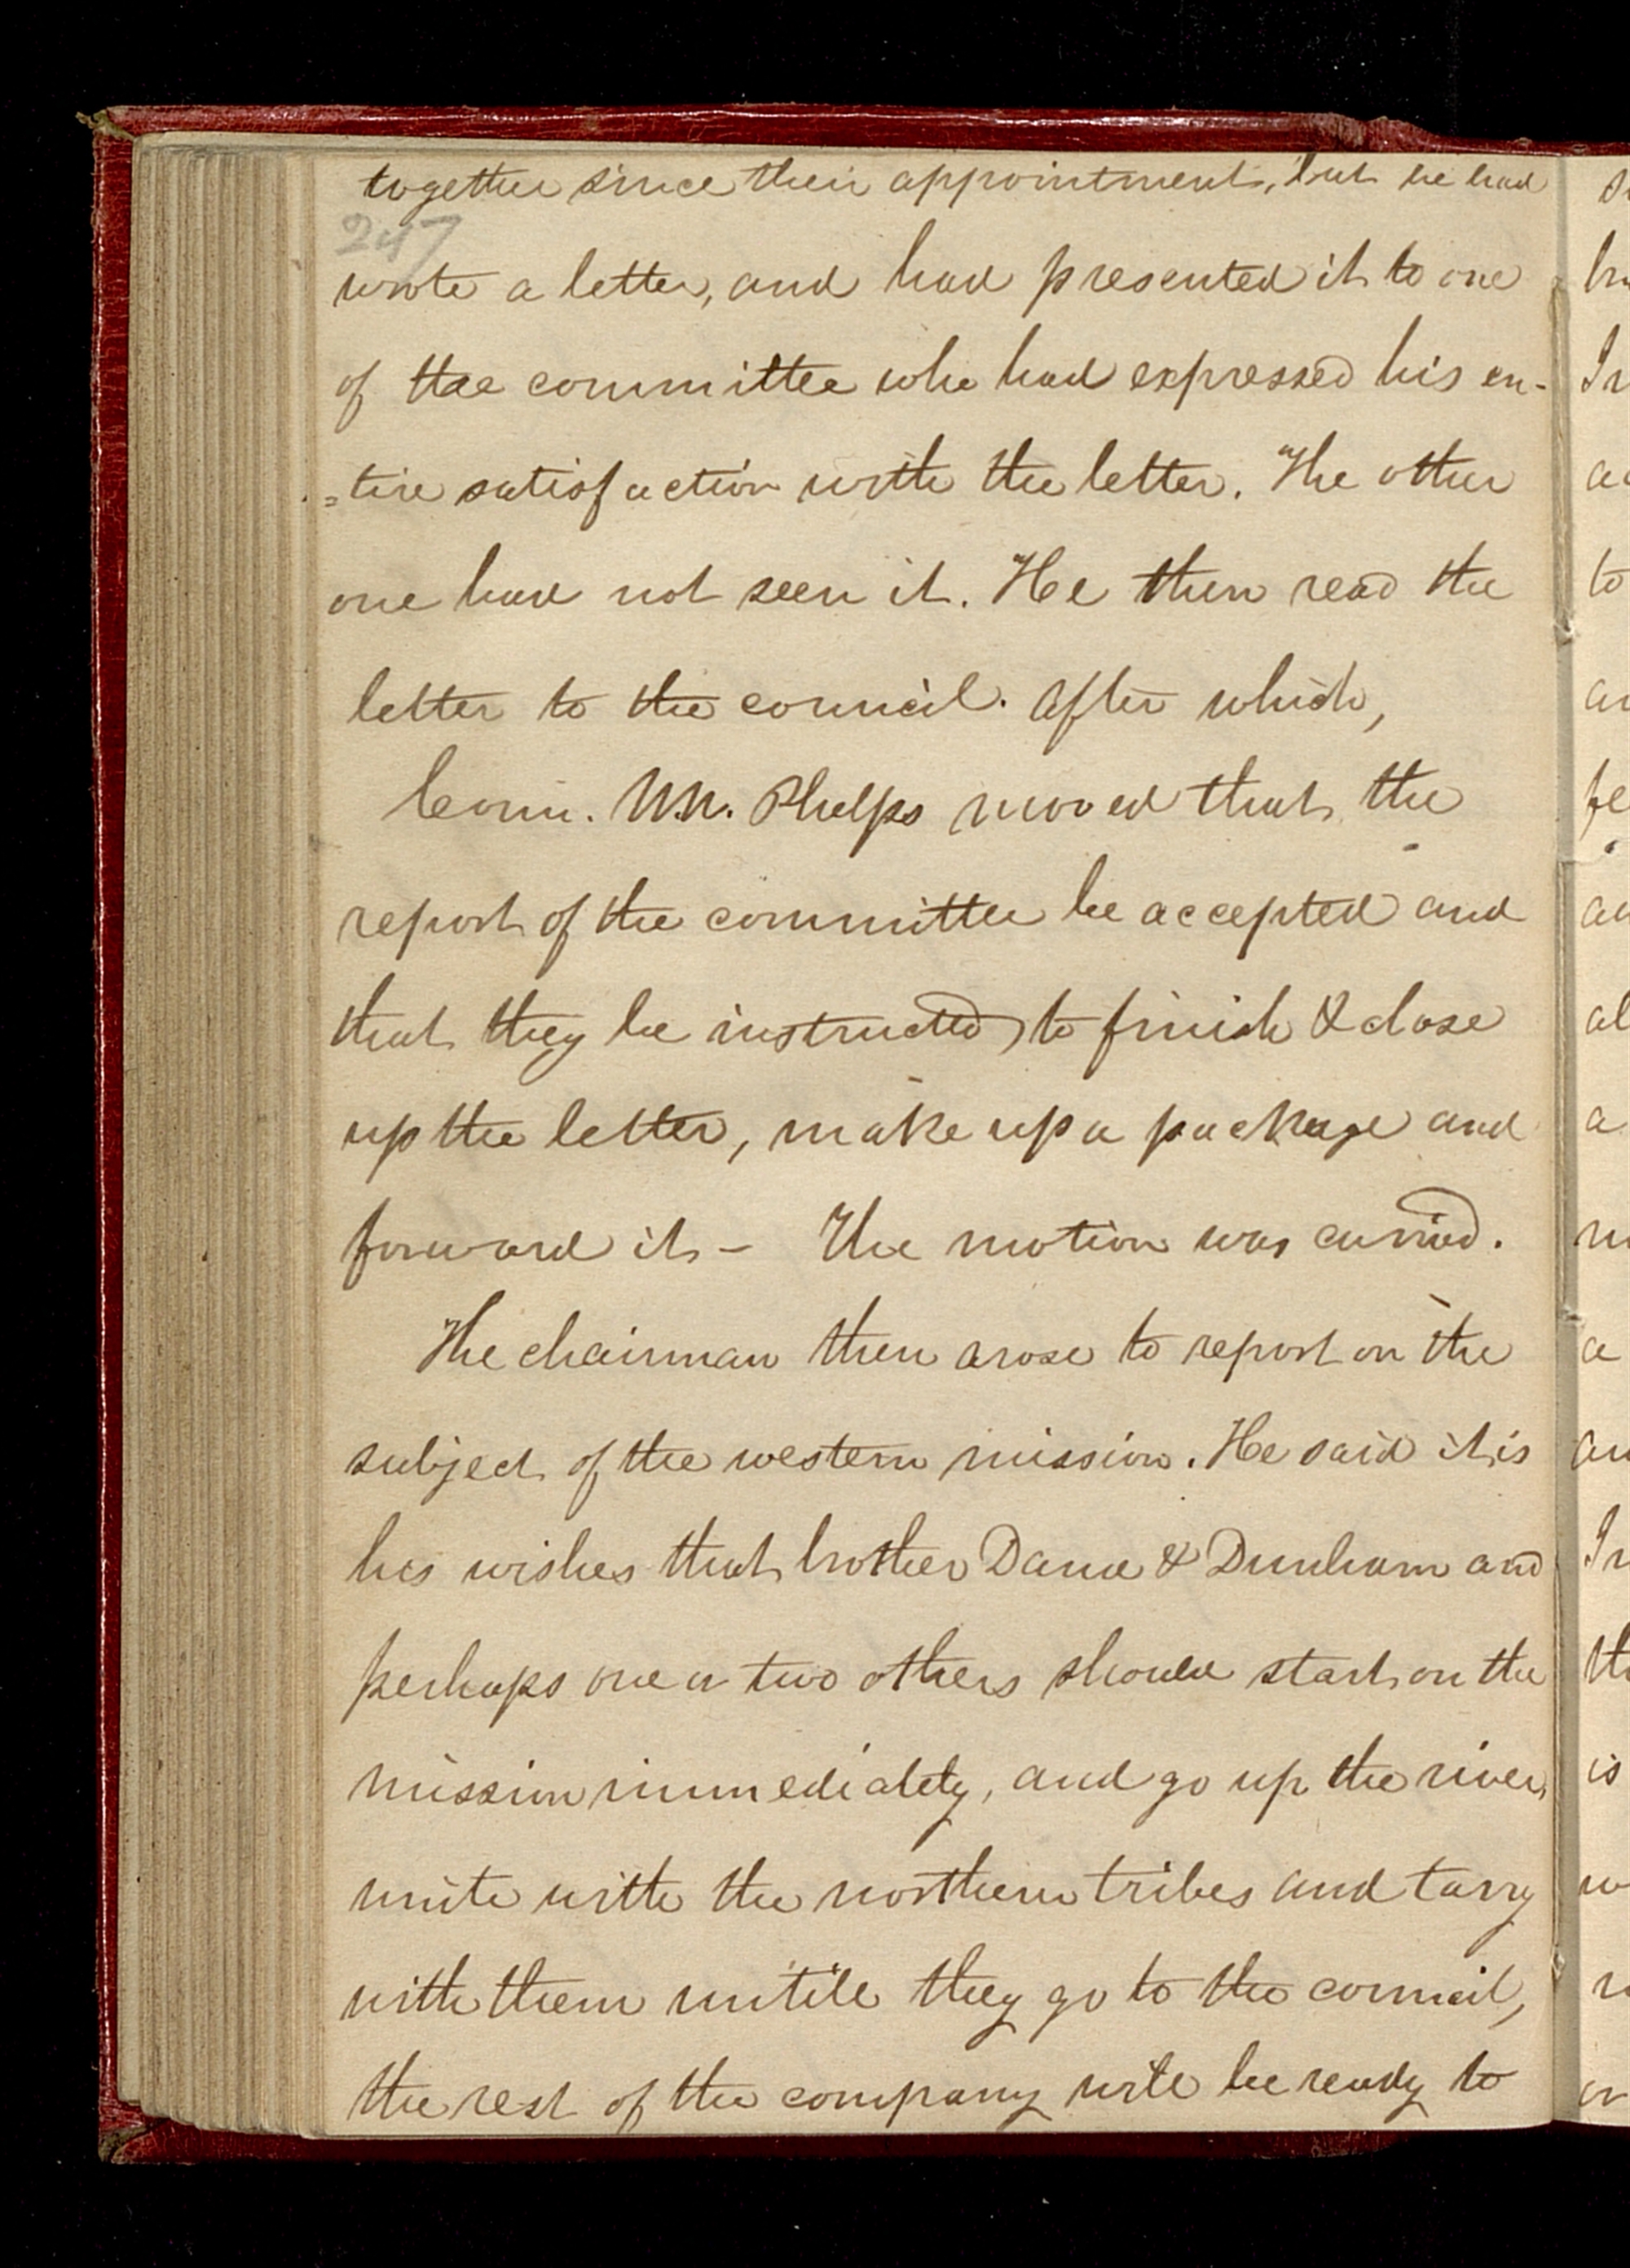 together since their appointment, but he had
247
wrote a letter, and had presented it to one
of the committee who had expressed his en-
=tire satisfaction with the letter. The other
one had not seen it. He then read the
letter to the council. After which,
Coun. W.W. Phelps moved that the
report of the committee be accepted and
that they be instructed to finish & close
up the letter, make up a package and
forward it— The motion was carried.
The chairman then arose to report on the
subject of the western mission. He said it is
his wishes that brother Dana & Dunham and
perhaps one or two others should start on the
mission immediately, and go up the river,
unite with the northern tribes and tarry
with them untill they go to the council,
the rest of the company will be ready to